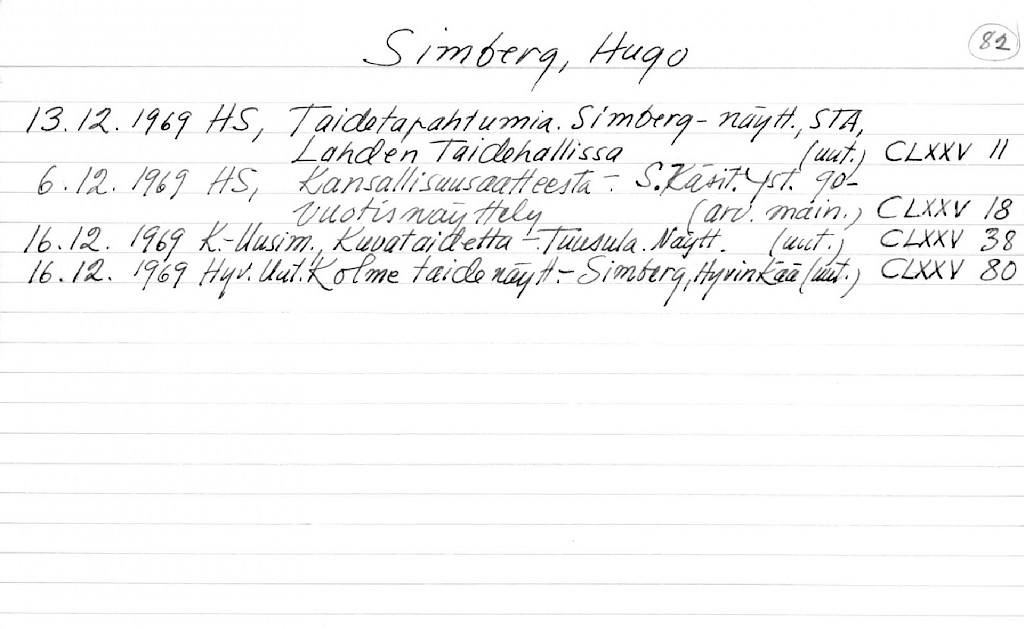 Simberg, Hugo
82
13.12.1969 HS, Taidetapahtumia. Simberg-näytt., STA,
Lahden Taidehallissa (uut.) CLXXV 11
6.12.1969 HS, Kansallisuusaatteesta-. S.Käsit.Yst. 90-
vuotisnäyttely (arv. main.) CLXXV 18
16.12.1969 K.-Uusim., Kuvataidetta-. Tuusula. Näytt. (uut.) CLXXV 38
16.12.1969 Hyv. Uut. Kolme taidenäytt.- Simberg, Hyvinkää (uut.) CLXXV 80